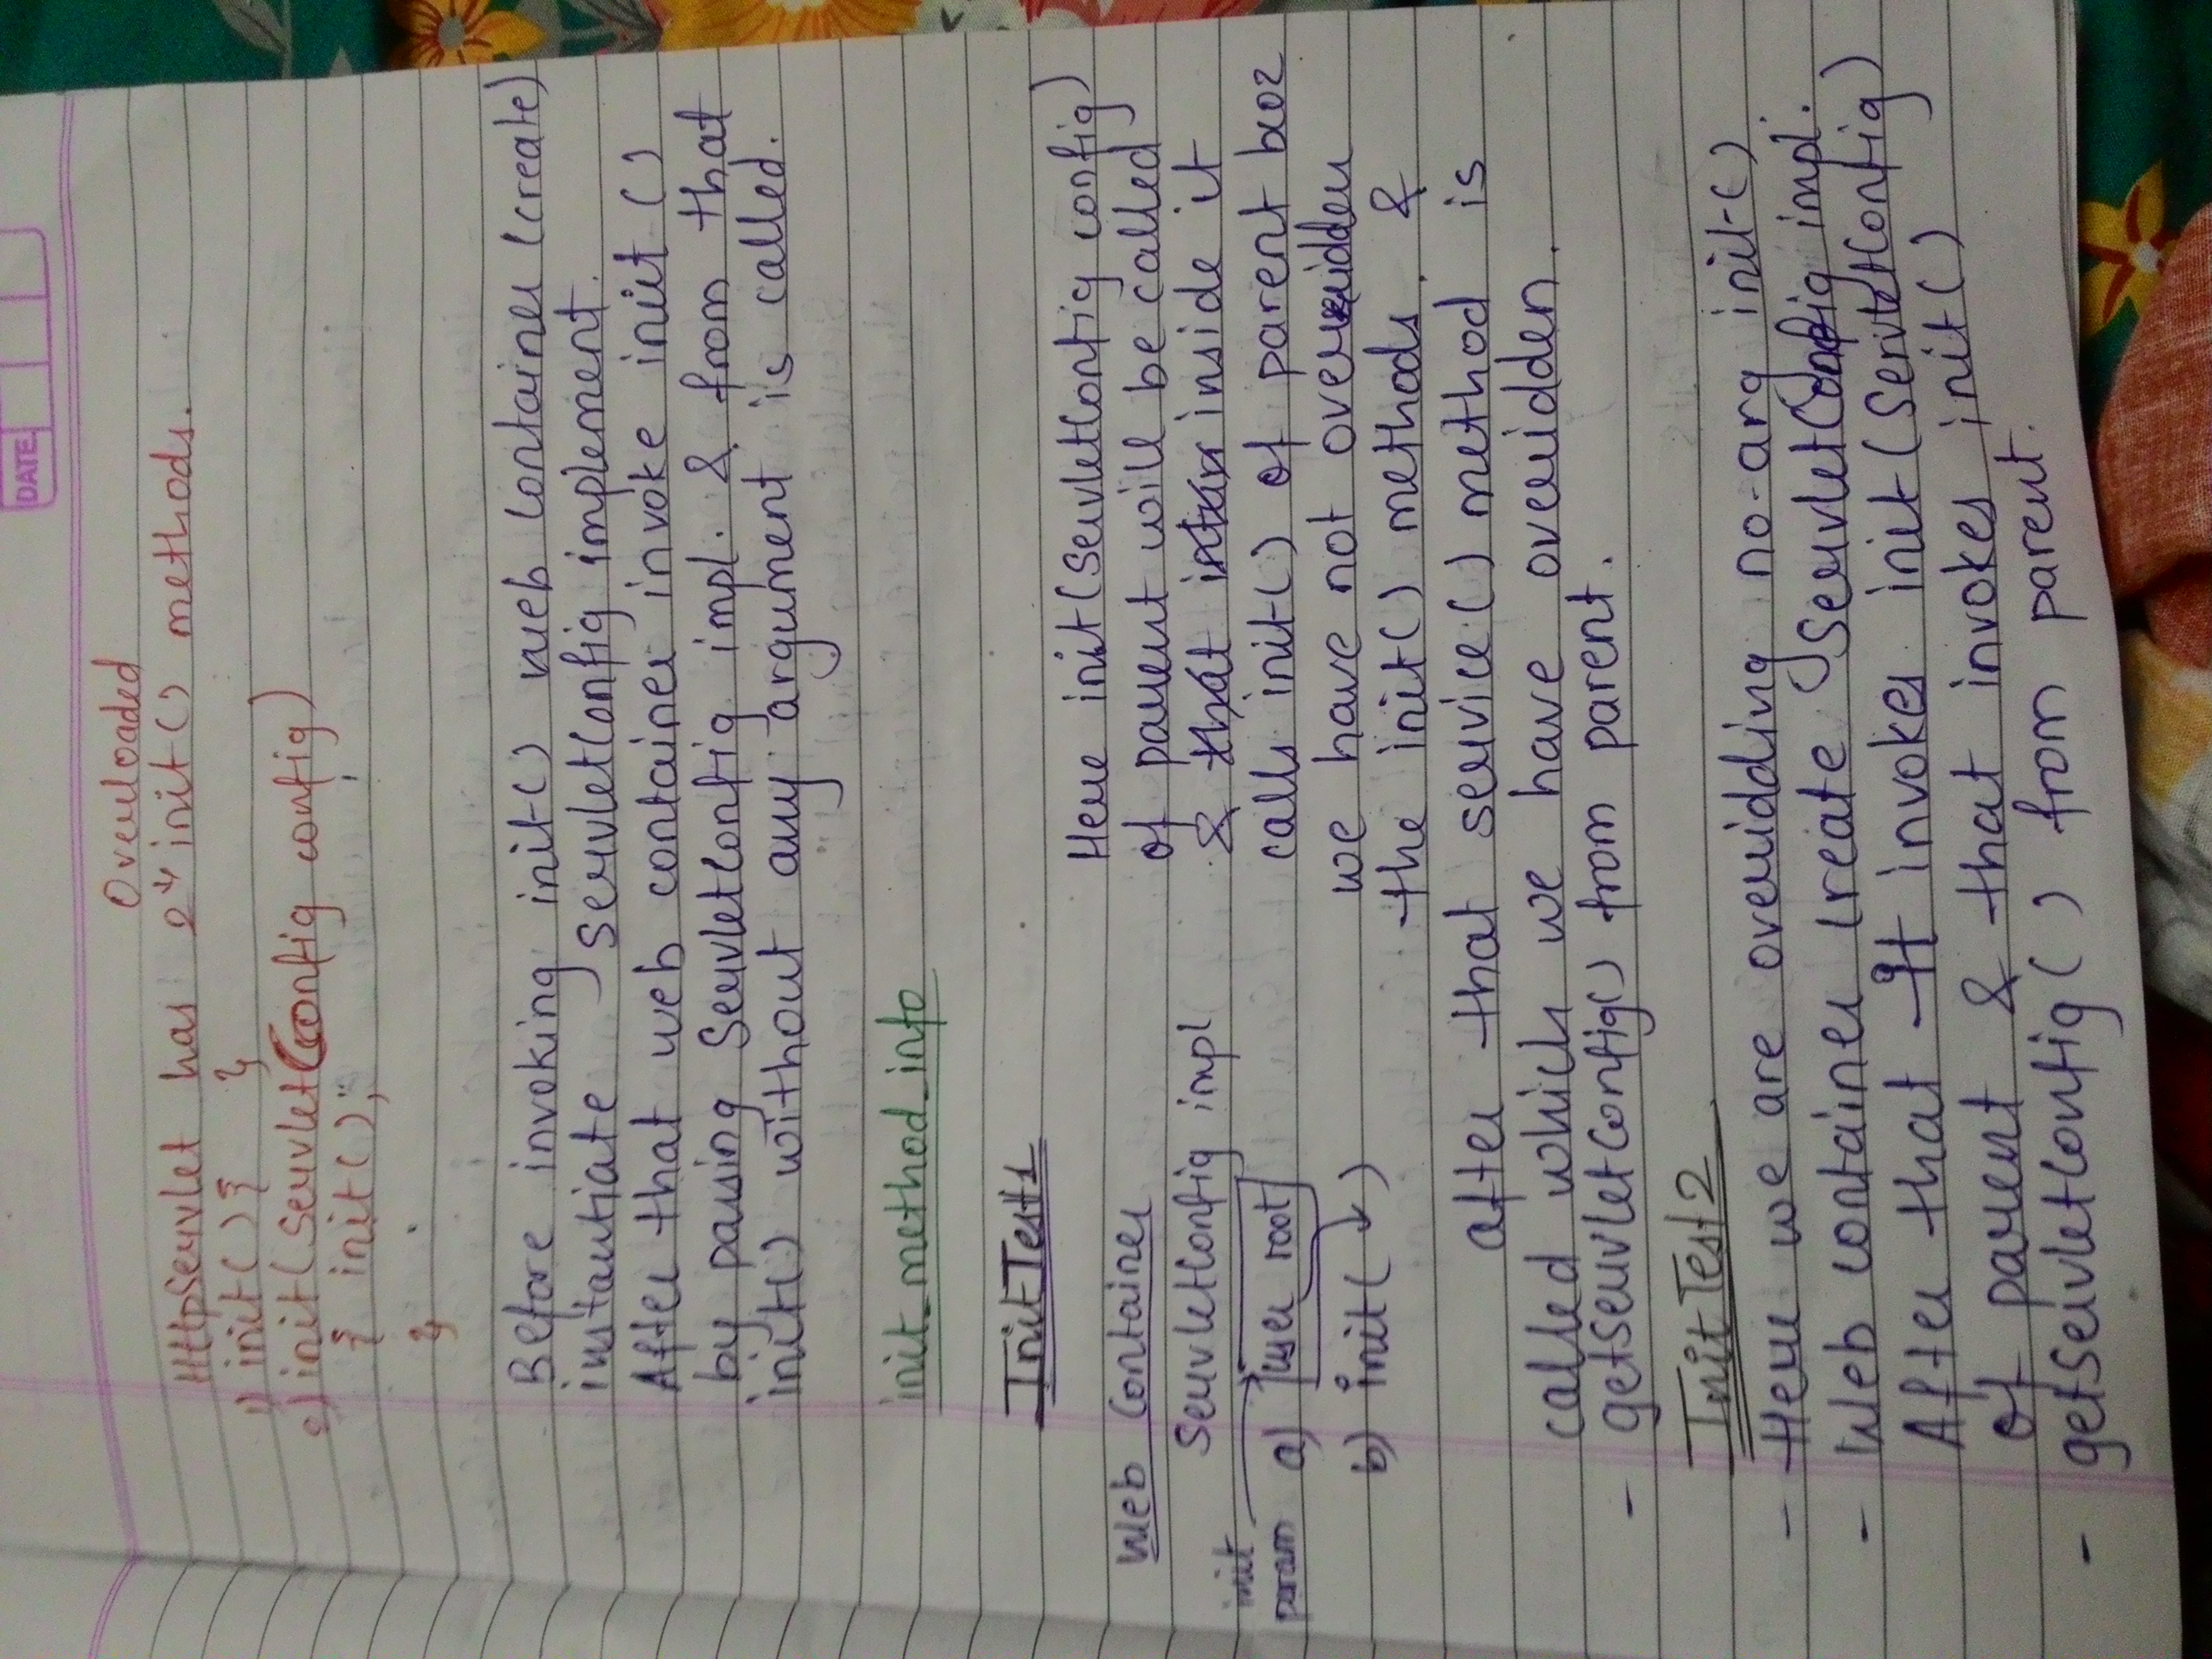 DATE
Overloaded
HttpServlet has 2 init() methods.
1) init(){ }
2) init(ServletConfig config)
{ init();
}
Before invoking init() web container (create)
instantiate ServletConfig implement.
After that web container invoke init ()
by passing ServletConfig impl. & from that
init() without any argument is called.
init_method_info
InitTest1
Web Container
ServletConfig impl
init
param a) user root
b) init( )
Here init(ServletConfig config)
of parent will be called
& that inside it
calls init() of parent bcoz
we have not overridden
the init() methods. &
after that service() method is
called which we have overridden.
- getServletConfig() from parent.
InitTest2
- Here we are overridding no-arg init().
- Web container create ServletConfig impl.
After that It invokes init(ServletConfig)
of parent & that invokes init()
- getServletConfig() from parent.